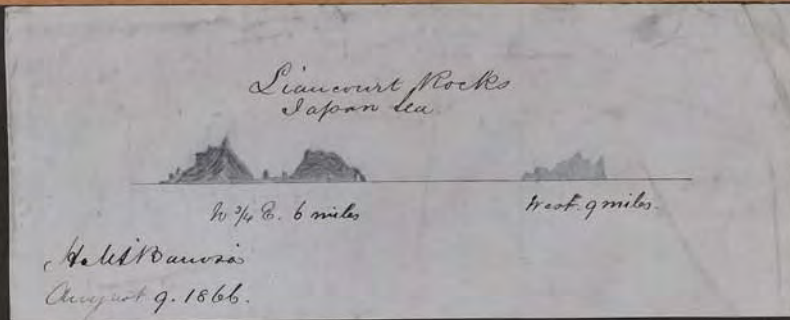 Liancourt Rocks
Japan Sea
N ¾ E. 6 miles
West. 9 miles.
August 9. 1866.